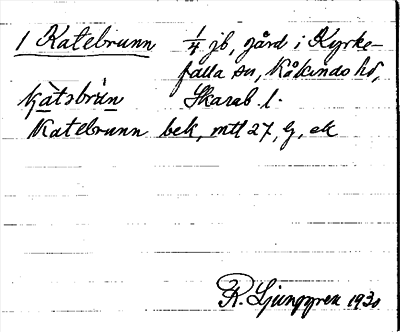 1 Katebrunn 1/4 jb, gård i Kyrke-
falla sn, Kåkinds hd,
kàtsbrùn Skarab. l.
Katebrunn bek, mtl 27, G, ek
R. Ljunggren 1930